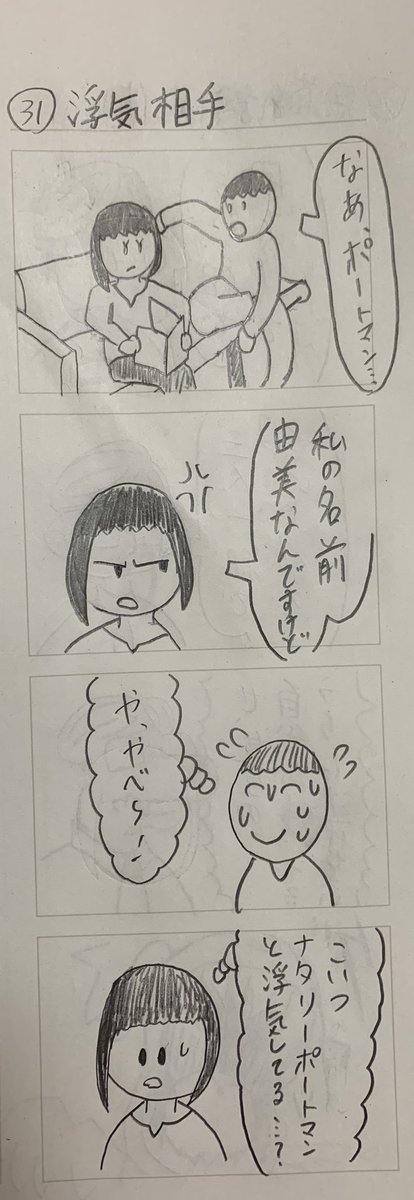 31 浮気相手
なあ、ポートマン…
私の名前
由美なんですけど
や、やべ〜ー、
こいつ
ナタリーポートマン
と浮気してる…?